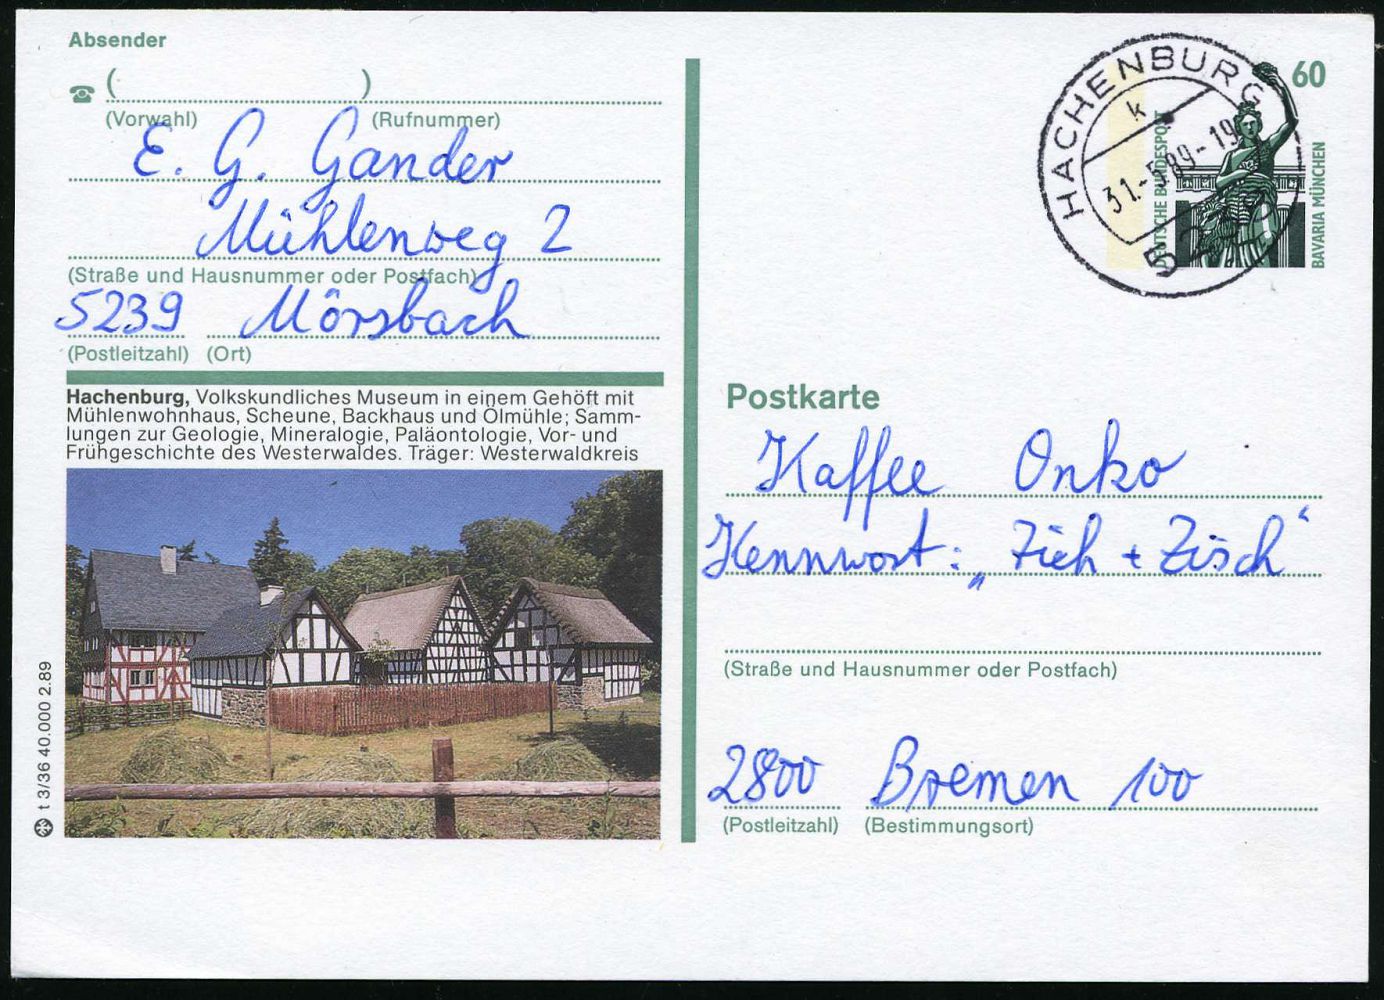 Absender
( )
(Vorwahl) (Rufnummer)
E. G. Gander
Mühlenweg 2
(Straße und Hausnummer oder Postfach)
5239 Mörsbach
(Postleitzahl) (Ort)
Hachenburg, Volkskundliches Museum in einem Gehöft mit
Mühlenwohnhaus, Scheune, Backhaus und Ölmühle; Samm-
lungen zur Geologie, Mineralogie, Paläontologie, Vor- und
Frühgeschichte des Westerwaldes. Träger: Westerwaldkreis
t 3/36 40.000 2.89
HACHENBURG
k
31.-5.89-19
60
DEUTSCHE BUNDESPOST
BAVARIA MÜNCHEN
Postkarte
Kaffee Onko
Kennwort: „Zieh + Zisch“
(Straße und Hausnummer oder Postfach)
2800 Bremen 100
(Postleitzahl) (Bestimmungsort)